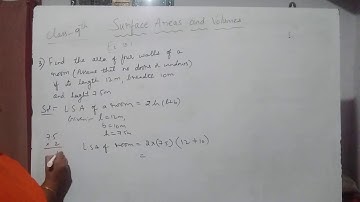 class-9th Surface Areas and Volumes
3) Find the area of four walls of a
room (Assume that no doors or windows)
if its length 12m, breadth 10m
and height 7.5m
Sol:- L.S.A of a room = 2h(l+b)
Given:- l=12m,
b=10m
h=7.5m
L.S.A of room = 2×(7.5)(12+10)
=
7.5
×2